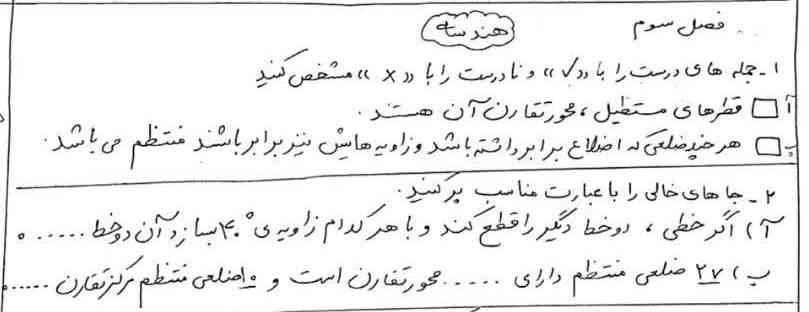 فصل سوم
هندسه
۱ـ جمله های درست را با «✓» و نادرست را با «×» مشخص کنید
آ □ قطرهای مستطیل، محور تقارن آن هستند.
ب □ هر چندضلعی که اضلاع برابر داشته باشد و زاویه هایش نیز برابر باشند منتظم می باشد.
۲ـ جاهای خالی را با عبارت مناسب پر کنید.
آ) اگر خطی، دو خط دیگر را قطع کند و با هر کدام زاویه ی ۴۰° بسازد آن دو خط ..... .
ب) ۲۷ ضلعی منتظم دارای ..... محور تقارن است و ۱۰ضلعی منتظم مرکز تقارن .....